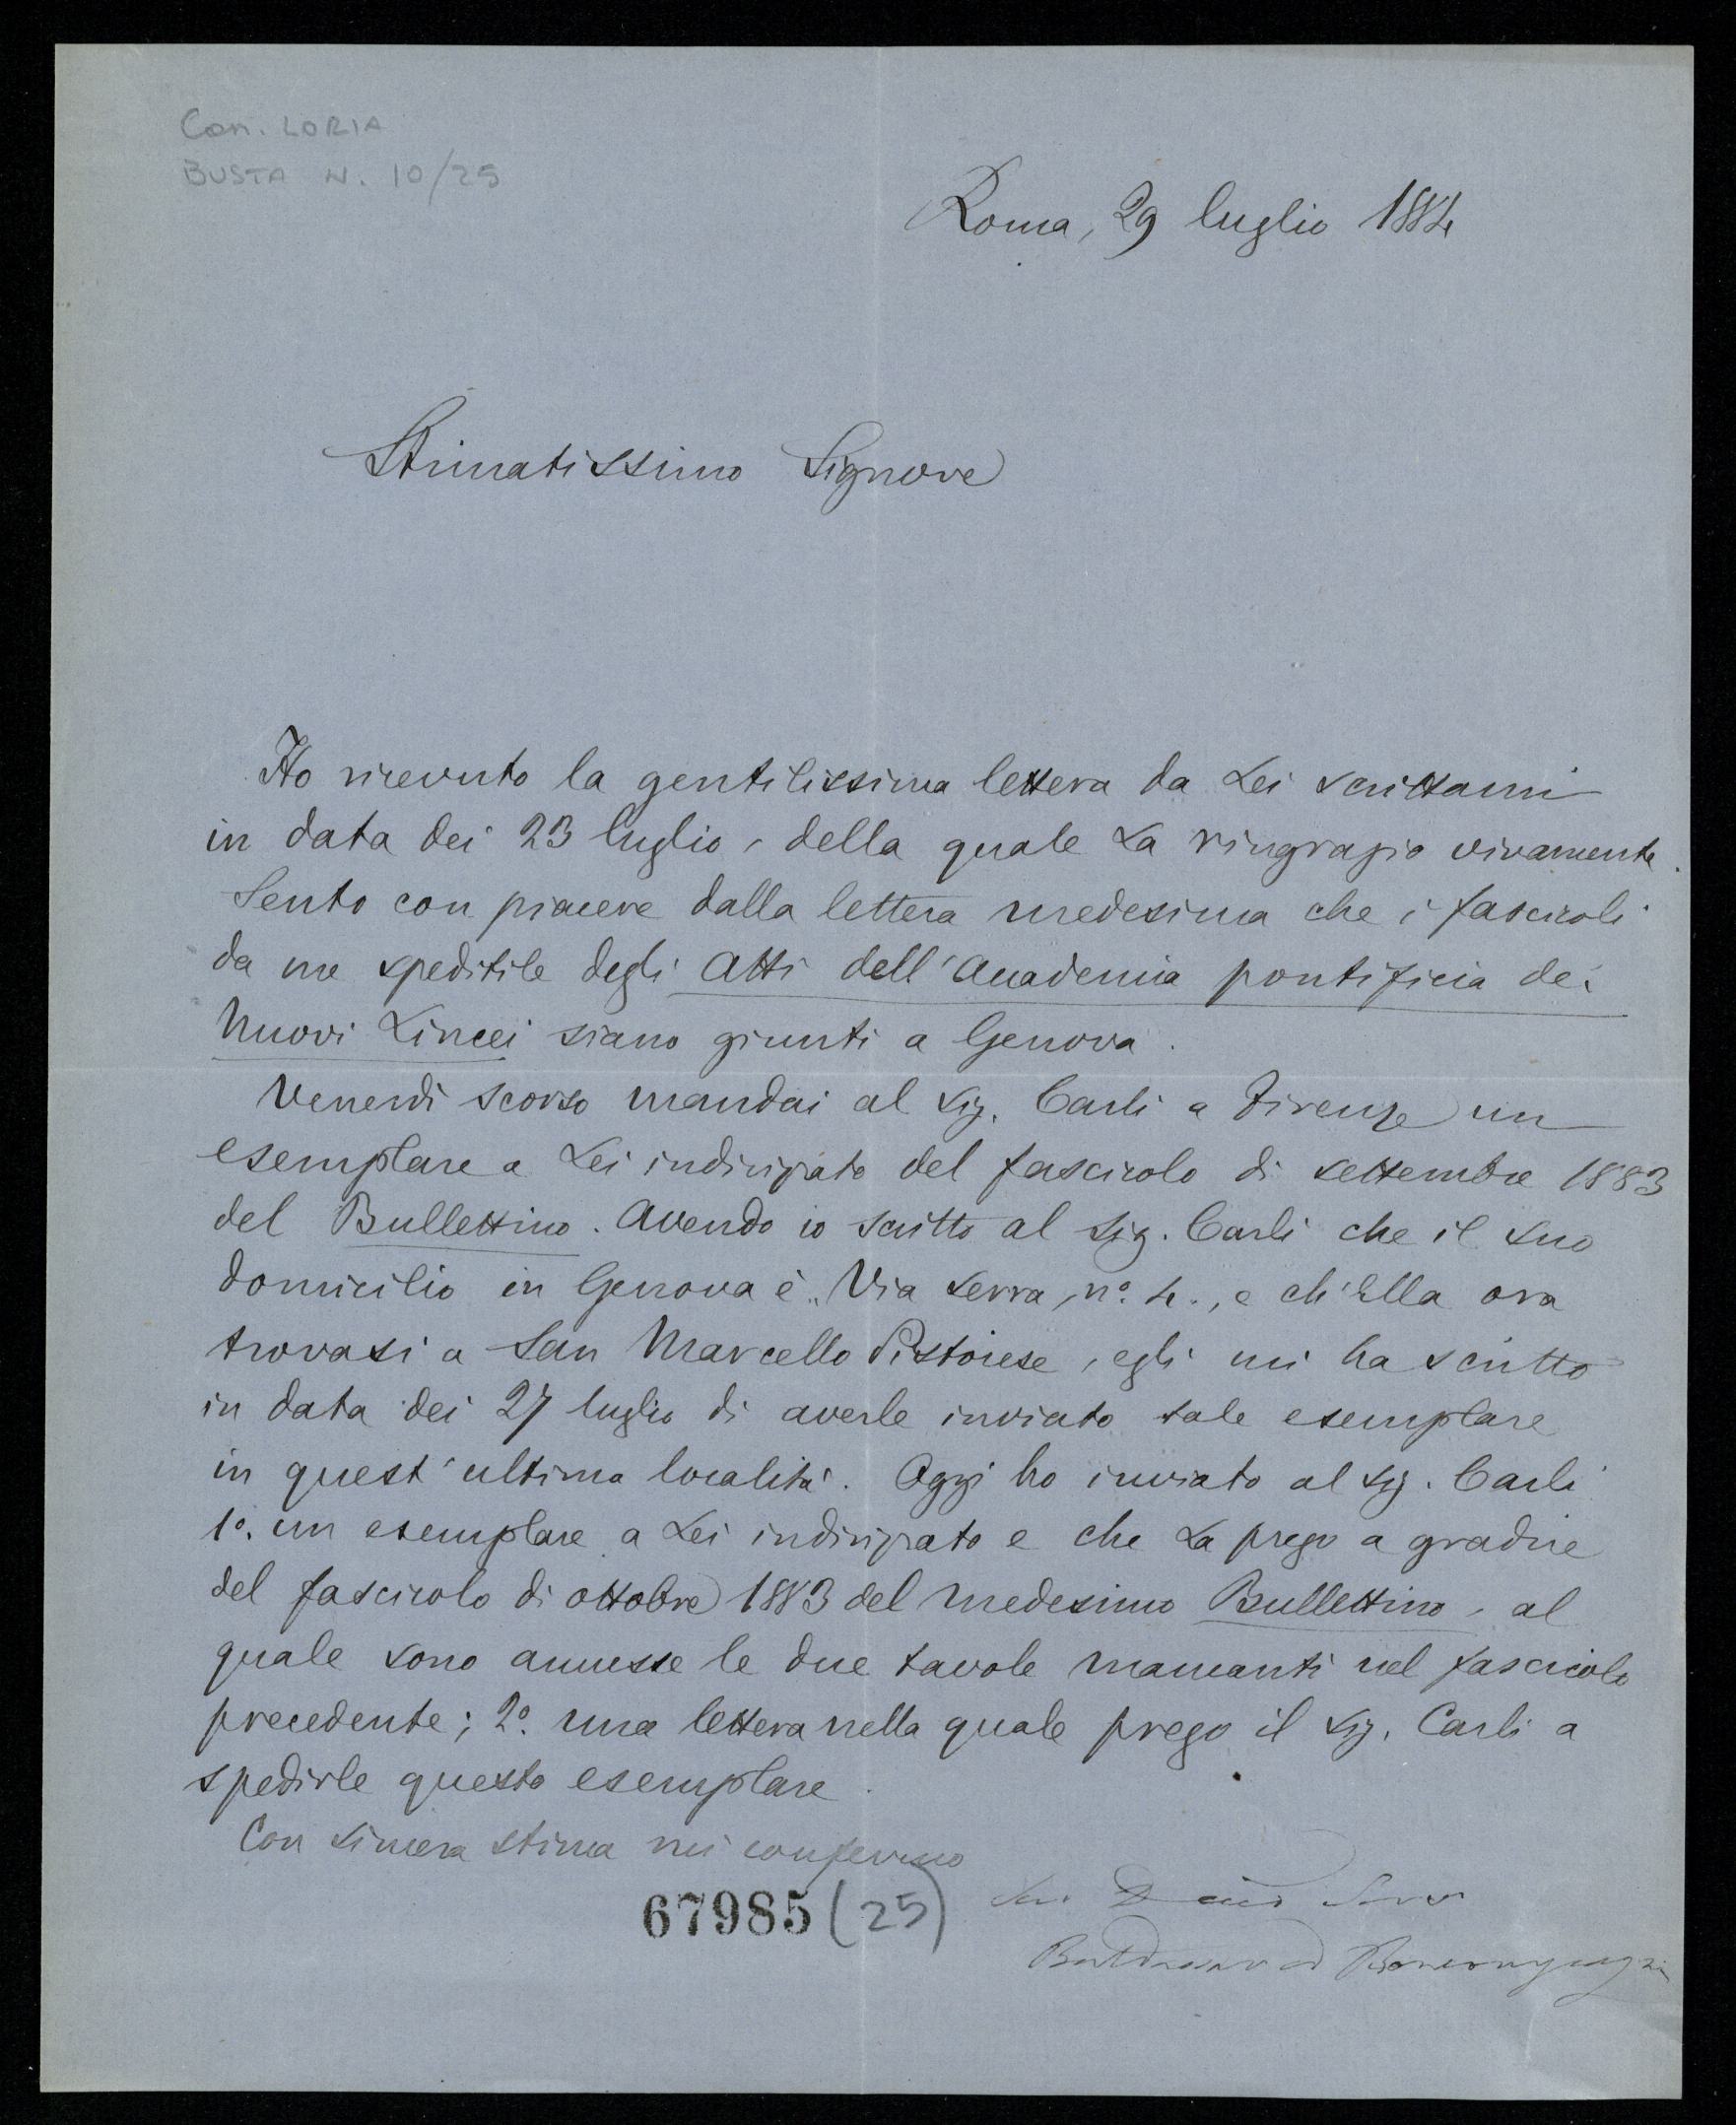 Con. LORIA
BUSTA N. 10/25
Roma, 29 luglio 1884
Stimatissimo Signore
Ho ricevuto la gentilissima lettera da Lei scrittami
in data dei 23 luglio, della quale La ringrazio vivamente.
Sento con piacere dalla lettera medesima che i fascicoli
da me speditile degli Atti dell'Accademia pontificia de'
Nuovi Lincei siano giunti a Genova.
Venerdì scorso mandai al Sig. Carli a Firenze un
esemplare a Lei indirizzato del fascicolo di settembre 1883
del Bullettino. Avendo io scritto al Sig. Carli che il suo
domicilio in Genova è „Via Serra, n.° 4., e ch'Ella ora
trovasi a San Marcello Pistoiese, egli mi ha scritto
in data dei 27 luglio di averle inviato tale esemplare
in quest'ultima località. Oggi ho inviato al Sig. Carli
1°. un esemplare a Lei indirizzato e che La prego a gradire
del fascicolo di ottobre 1883 del medesimo Bullettino, al
quale sono annesse le due tavole mancanti nel fascicolo
precedente; 2°. una lettera nella quale prego il Sig. Carli a
spedirle questo esemplare.
Con sincera stima mi confermo
67985 (25)
Suo Servo
Baldassarre Boncompagni